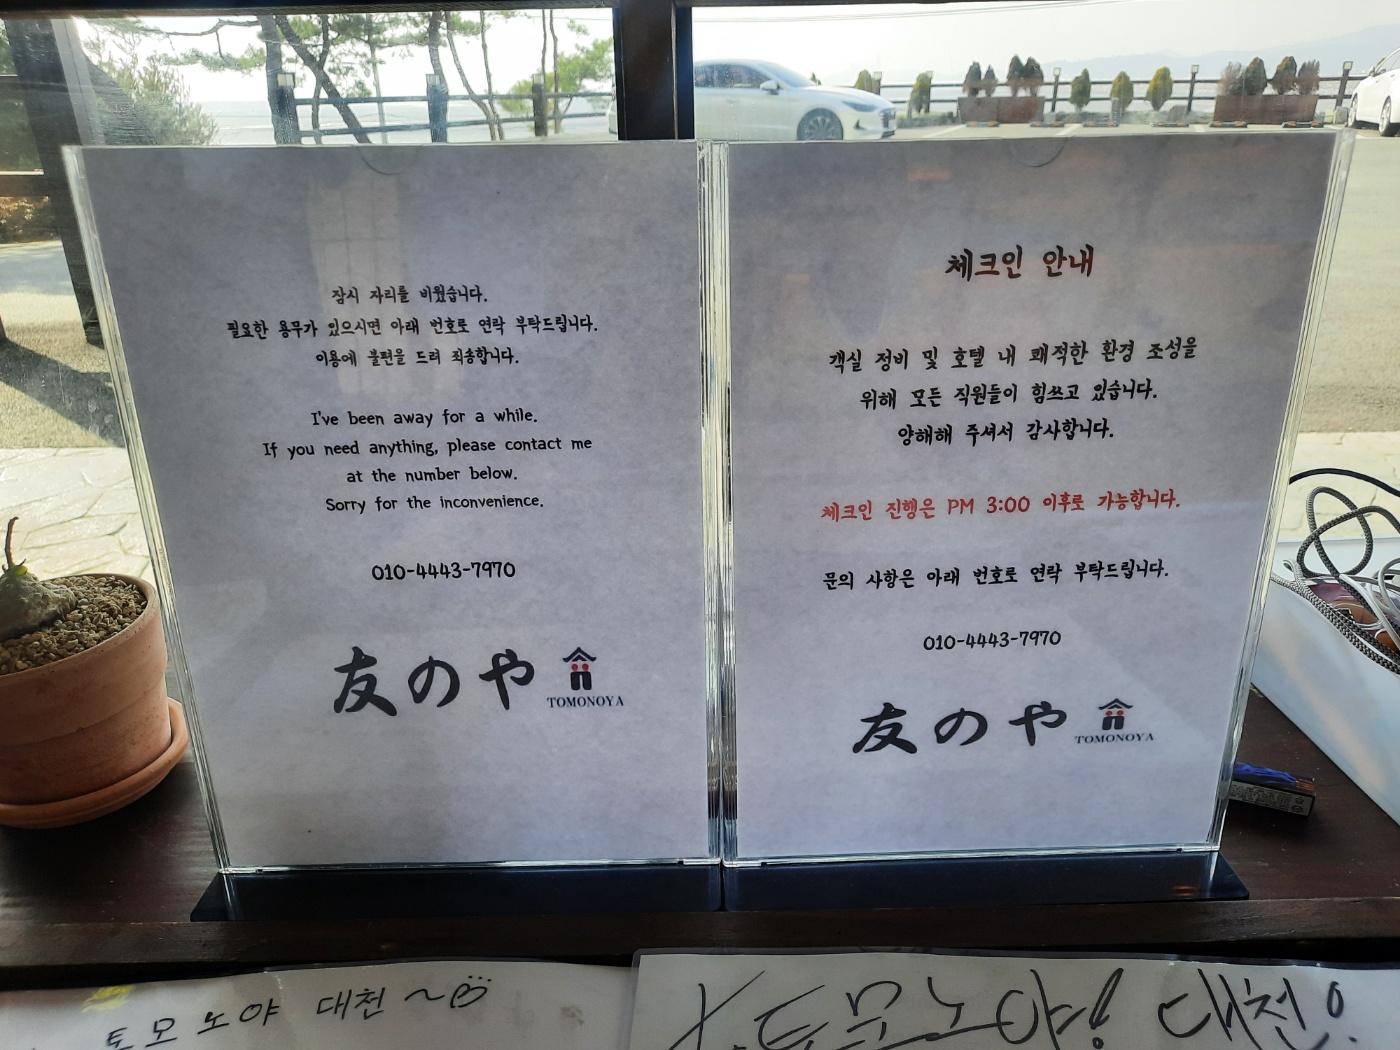 잠시 자리를 비웠습니다.
필요한 용무가 있으시면 아래 번호로 연락 부탁드립니다.
이용에 불편을 드려 죄송합니다.
I've been away for a while.
If you need anything, please contact me
at the number below.
Sorry for the inconvenience.
010-4443-7970
友のや
TOMONOYA
체크인 안내
객실 정비 및 호텔 내 쾌적한 환경 조성을
위해 모든 직원들이 힘쓰고 있습니다.
양해해 주셔서 감사합니다.
체크인 진행은 PM 3:00 이후로 가능합니다.
문의 사항은 아래 번호로 연락 부탁드립니다.
010-4443-7970
友のや
TOMONOYA
토모노야 대천~
토모노야! 대천!